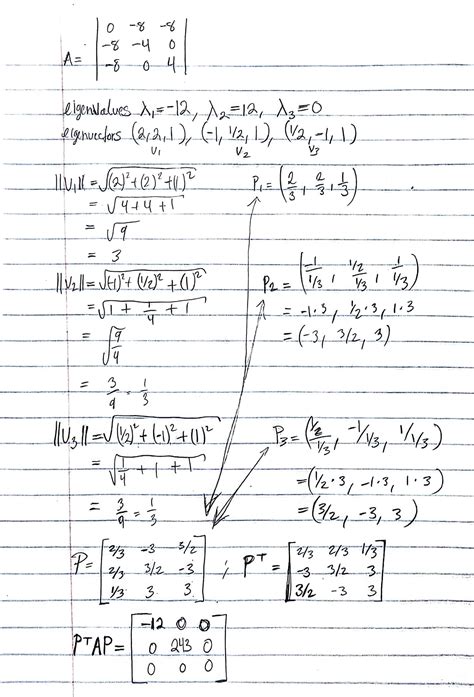 A = | 0 -8 -8 |
| -8 -4 0 |
| -8 0 4 |
eigenvalues λ₁=-12, λ₂=12, λ₃=0
eigenvectors (2,2,1), (-1, 1/2, 1), (1/2, -1, 1)
v₁ v₂ v₃
||v₁|| = √((2)²+(2)²+(1)²
= √(4+4+1
= √9
= 3
P₁ = (2/3, 2/3, 1/3)
||v₂|| = √((-1)²+(1/2)²+(1)²
= √(1 + 1/4 + 1
= √(9/4)
= 3/9 = 1/3
P₂ = (-1/1/3, 1/2/1/3, 1/1/3)
= -1·3, 1/2·3, 1·3
= (-3, 3/2, 3)
||v₃|| = √((1/2)²+(-1)²+(1)²
= √(1/4 + 1 + 1
= 3/9 = 1/3
P₃ = (1/2/1/3, -1/1/3, 1/1/3)
= (1/2·3, -1·3, 1·3)
= (3/2, -3, 3)
P = [2/3 -3 3/2] ; Pᵀ = [2/3 2/3 1/3]
[2/3 3/2 -3] [-3 3/2 3]
[1/3 3 3] [3/2 -3 3]
PᵀAP = [-12 0 0]
[0 243 0]
[0 0 0]